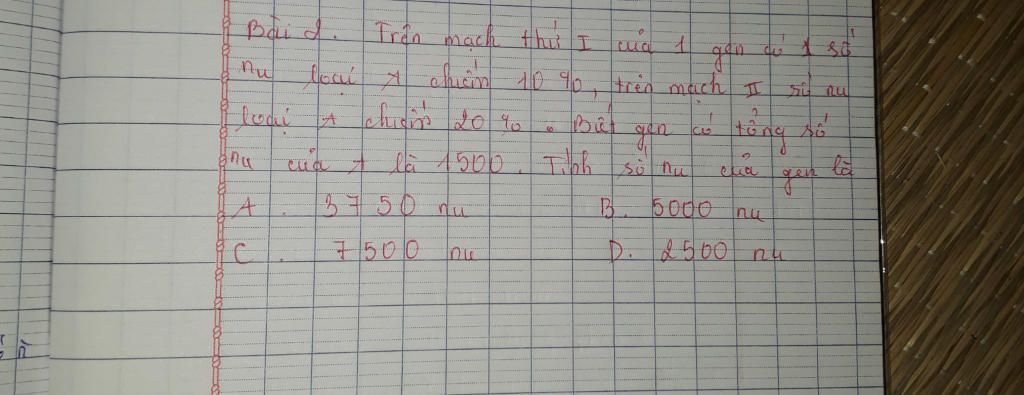 Bài 2. Trên mạch thứ I của 1 gen có 1 số
nu loại A chiếm 10%, trên mạch II số nu
loại A chiếm 20%. Biết gen có tổng số
nu của A là 1500. Tính số nu của gen là
A. 3750 nu B. 5000 nu
C. 7500 nu D. 2500 nu